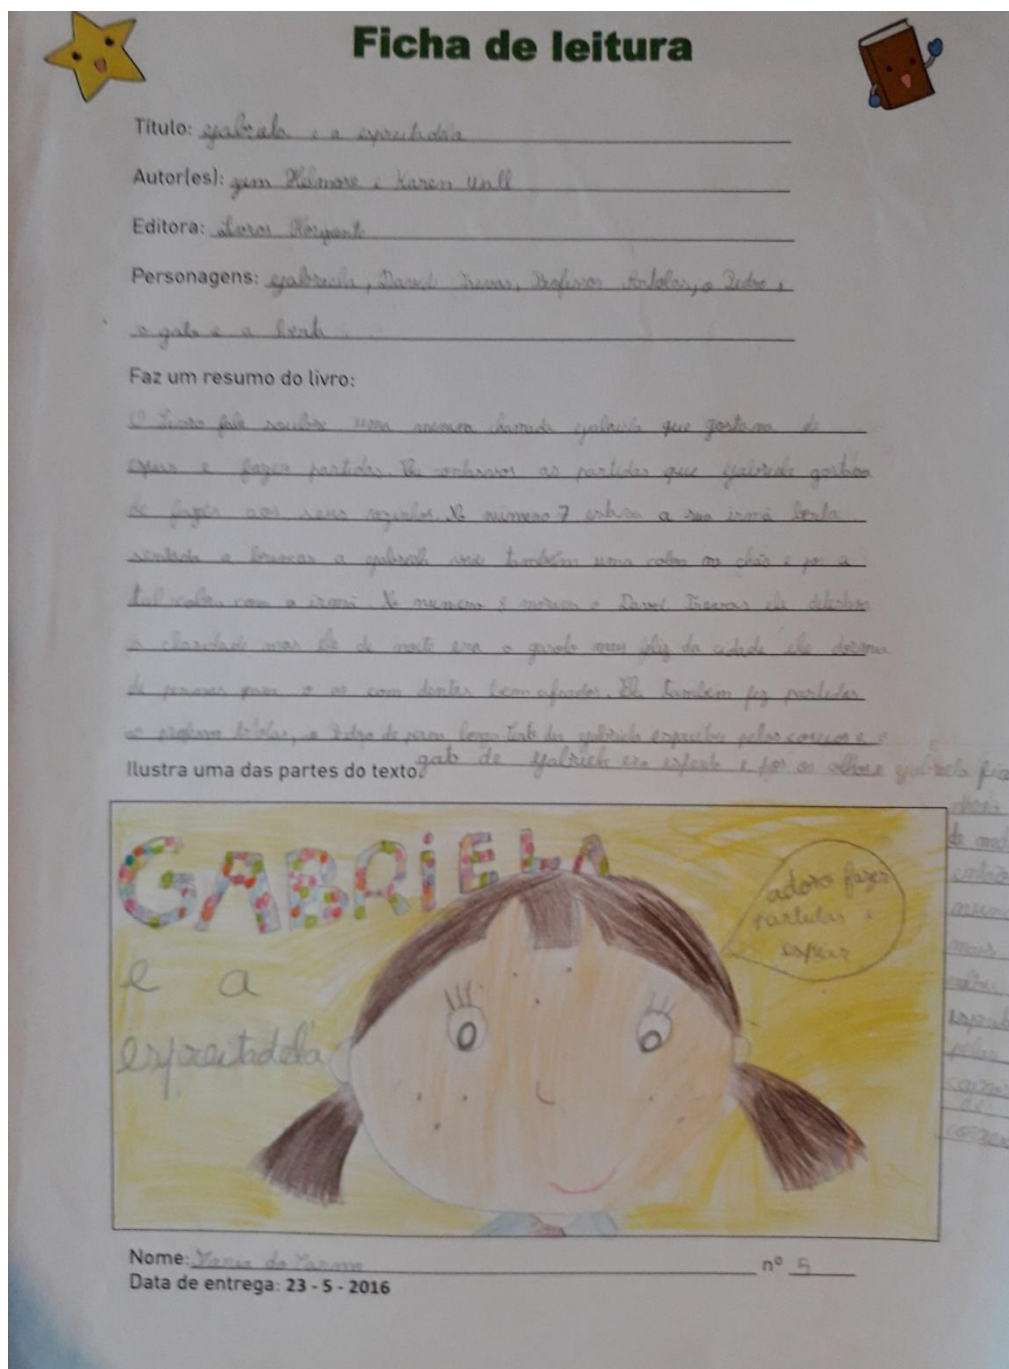 Ficha de leitura
Título: gabriela e a espreitadela
Autor(es): gem Helmore e Karen Wall
Editora: Livros Horizonte
Personagens: gabriela, David Trevas, Professor Antolas, o Pedro,
o gato e a berta
Faz um resumo do livro:
O Livro fala uma menina chamada gabriela que gostava de
espiar e fazer partidas. as partidas que gabriela gostava
de fazer aos seus vizinhos. No número 7 estava a sua irmã berta
sentada a brincar a gabriela também uma cobra no chão e
tal cobra com a irmã. No número 8 morava o David Trevas ele detestava
a claridade mas ele de noite era o garoto mais feliz da cidade ele dormia
de pernas para o ar com dentes bem afiados. Ele também fez partidas
ao o Pedro de perna longa. gabriela espreitou pelos e o
Ilustra uma das partes do texto:
gato de gabriela era esperto e pôs os olhos e gabriela
cheia
de
então
nunca
mais
espreit
pelas
caixas
de
GABRIELA
e a
espreitadela
adoro fazer
partidas e
espiar
Nome: Maria do Carmo nº 5
Data de entrega: 23 - 5 - 2016